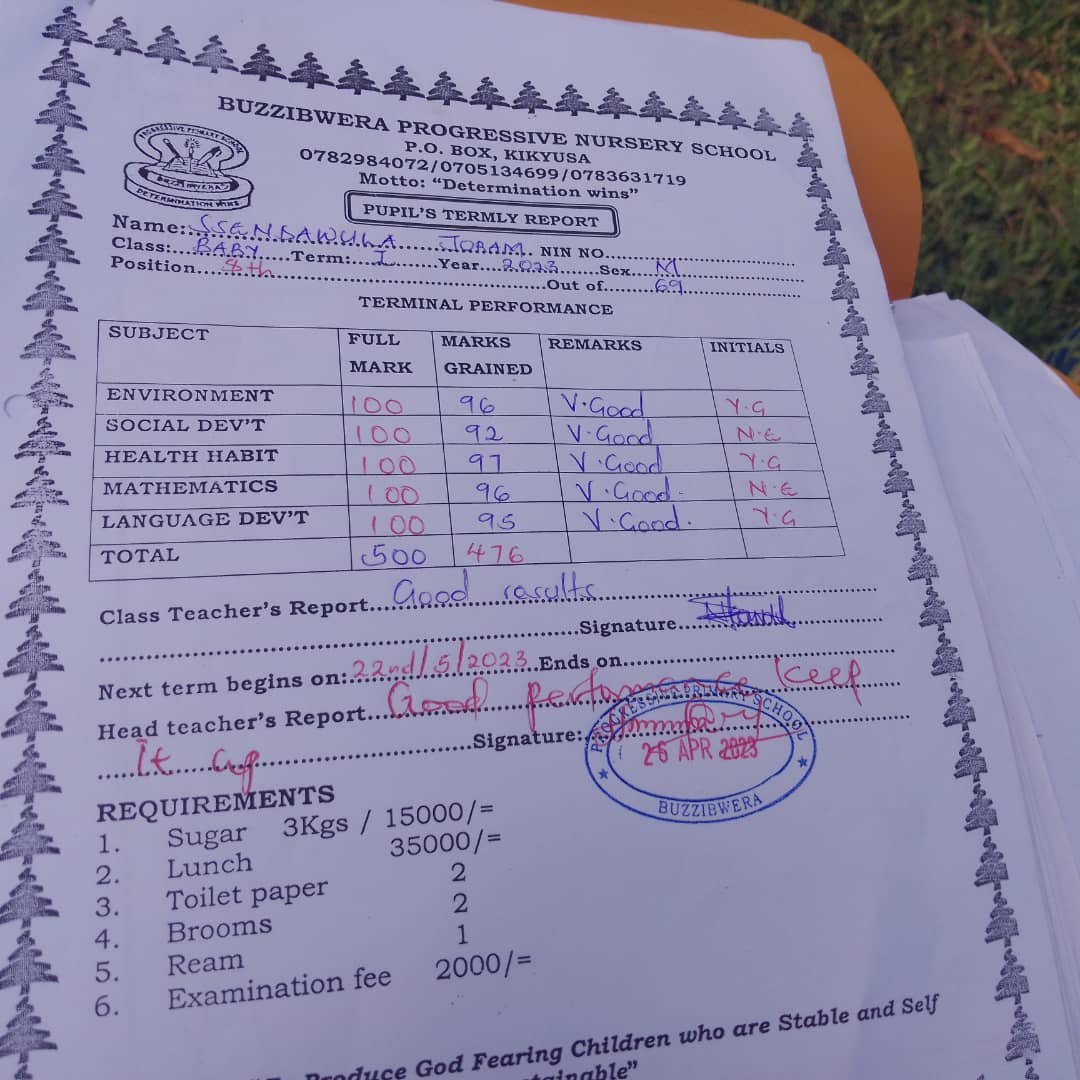 BUZZIBWERA PROGRESSIVE NURSERY SCHOOL
P.O. BOX, KIKYUSA
0782984072/0705134699/0783631719
Motto: "Determination wins"
PROGRESSIVE PRIMARY SCHOOL
BUZZIBWERA
DETERMINATION WINS
PUPIL'S TERMLY REPORT
Name: SSENDAWULA JOBAM. NIN NO.
Class: BABY Term: I Year 2023 Sex M
Position 8th Out of 69
TERMINAL PERFORMANCE
SUBJECT FULL MARK MARKS GRAINED REMARKS INITIALS
ENVIRONMENT 100 96 V.Good Y.G
SOCIAL DEV'T 100 92 V.Good N.E
HEALTH HABIT 100 97 V.Good Y.G
MATHEMATICS 100 96 V.Good. N.E
LANGUAGE DEV'T 100 95 V.Good. Y.G
TOTAL 500 476
Class Teacher's Report Good rasults
Signature
Next term begins on: 22nd/5/2023 Ends on
Head teacher's Report Good performance keep
It up Signature:
PROGRESSIVE PRIMARY SCHOOL
26 APR 2023
BUZZIBWERA
REQUIREMENTS
1. Sugar 3Kgs / 15000/=
2. Lunch 35000/=
3. Toilet paper 2
4. Brooms 2
5. Ream 1
6. Examination fee 2000/=
Produce God Fearing Children who are Stable and Self